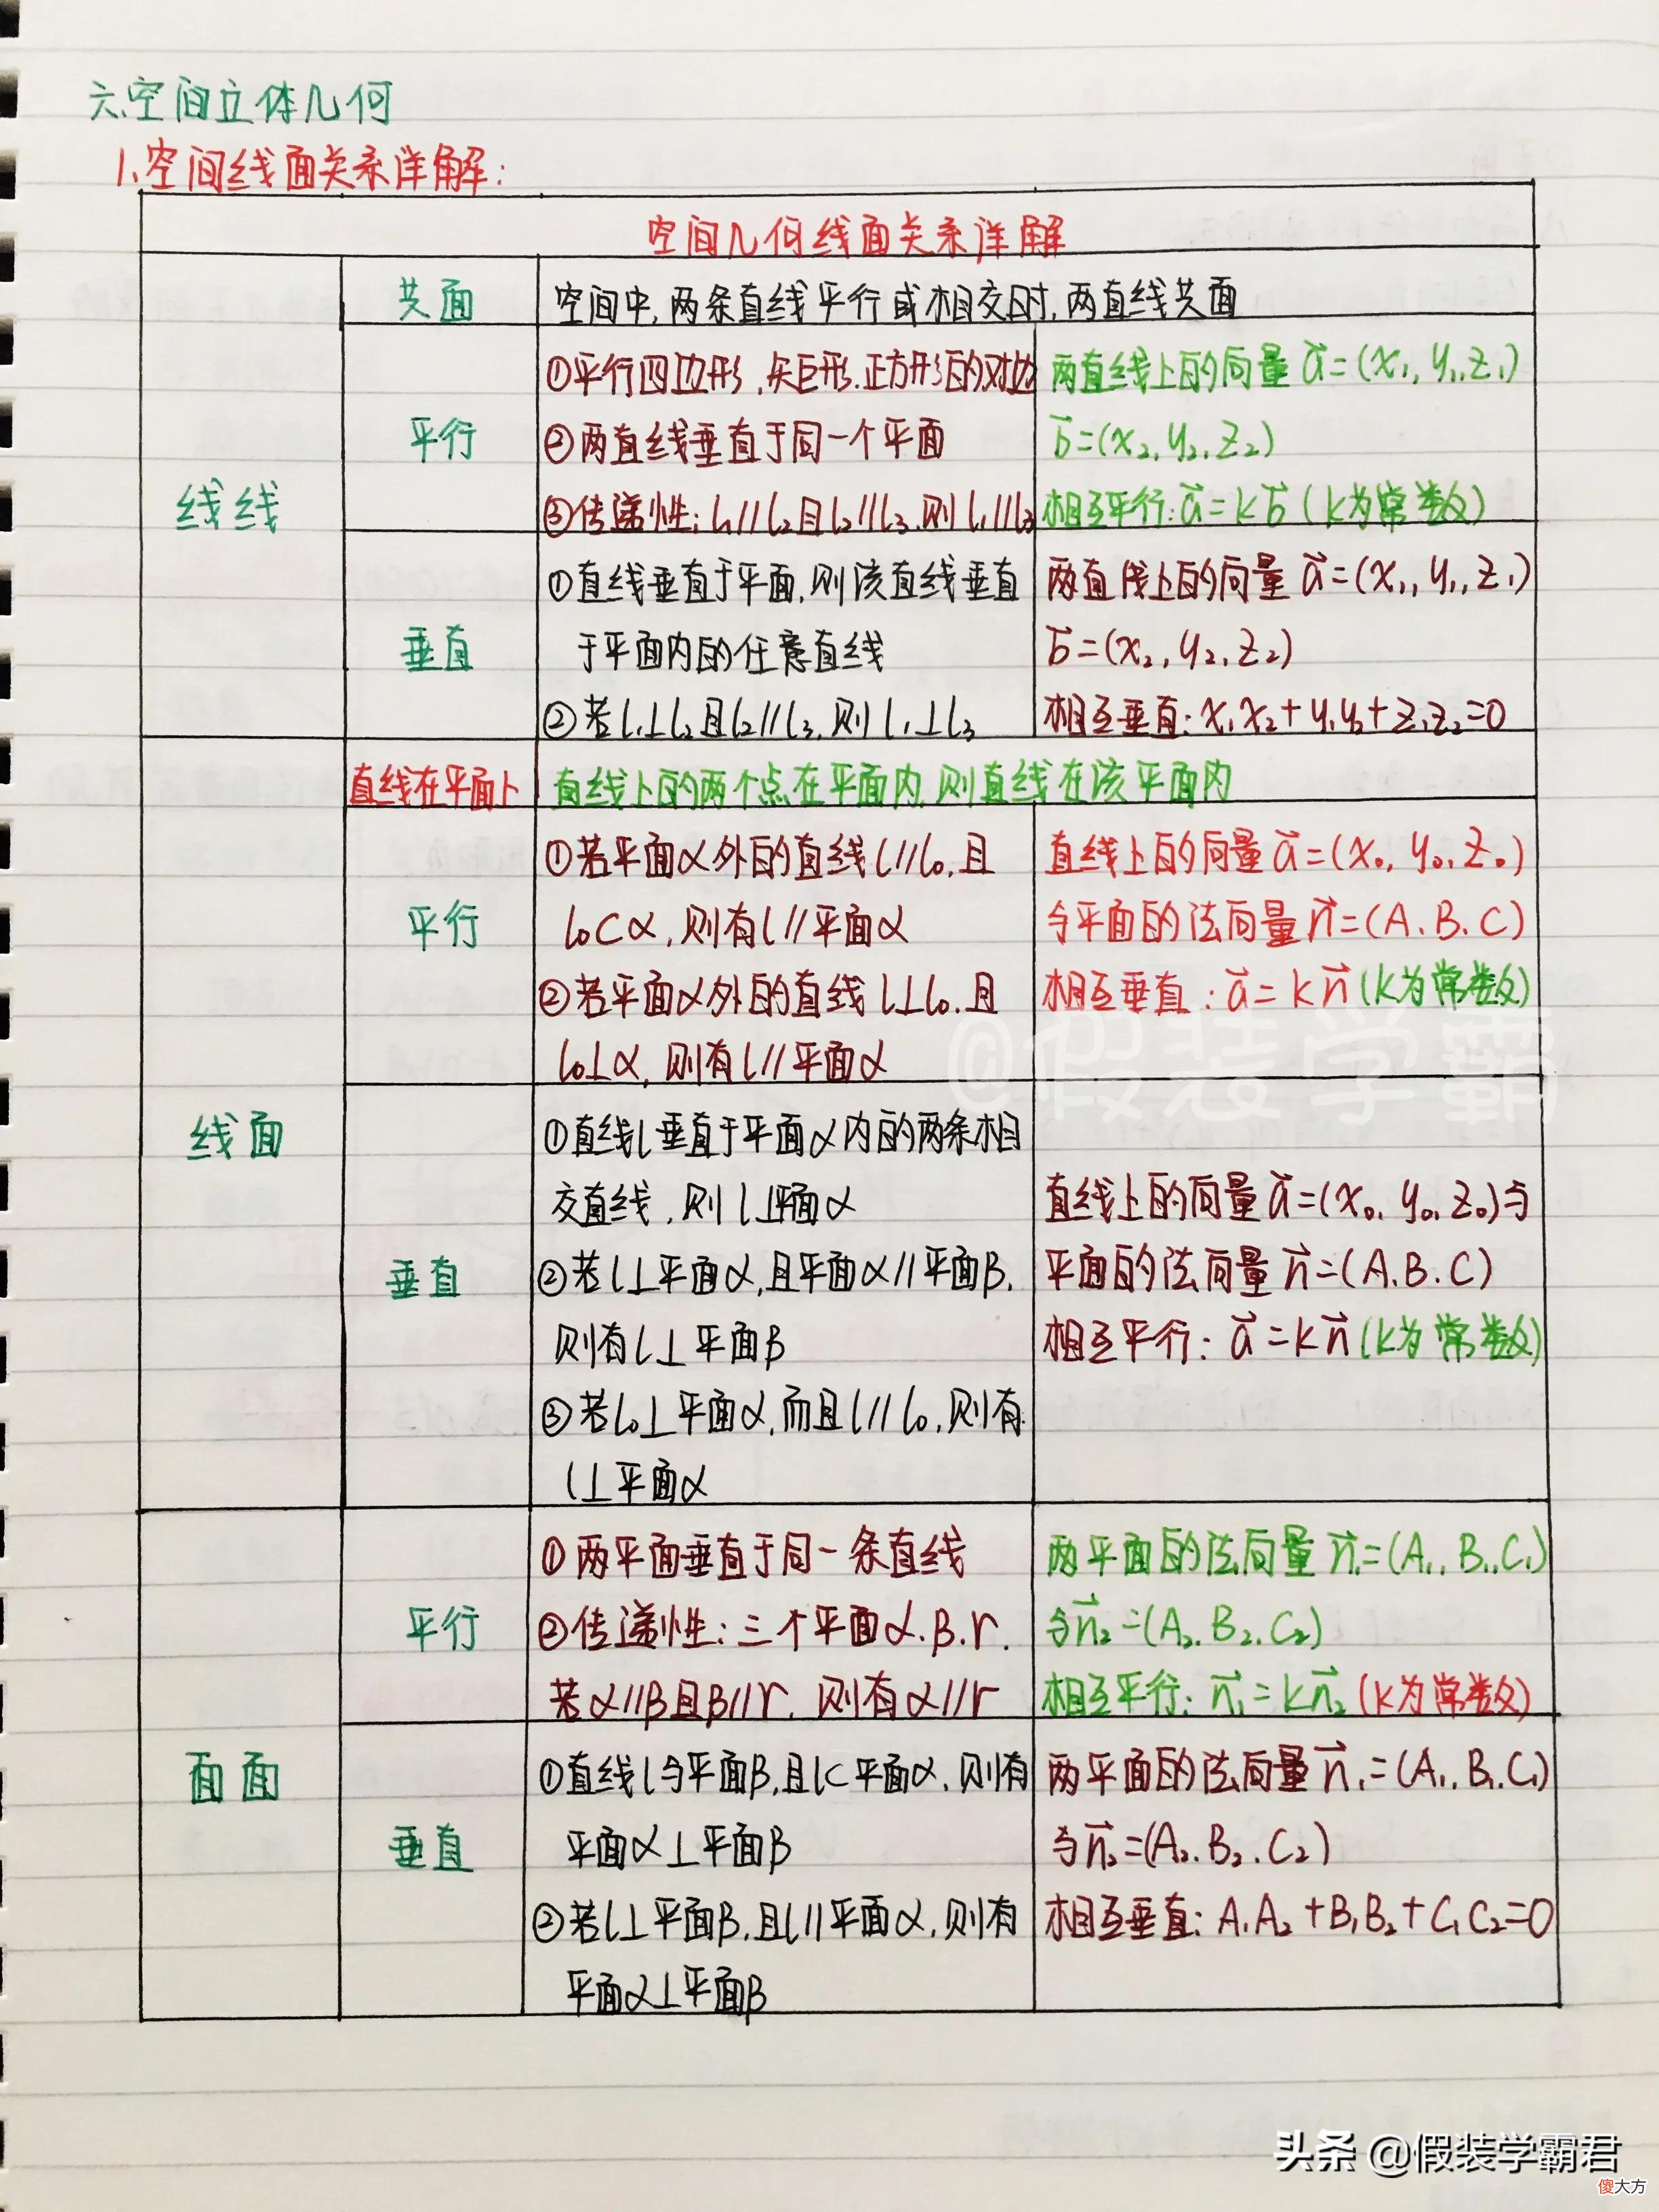 六.空间立体几何
1.空间线面关系详解:
空间几何线面关系详解
线线
共面
空间中,两条直线平行或相交时,两直线共面
平行
①平行四边形,矩形.正方形的对边
②两直线垂直于同一个平面
③传递性: l₁//l₂且l₂//l₃.则l₁//l₃
两直线上的向量 a⃗=(x₁,y₁,z₁)
b⃗=(x₂,y₂,z₂)
相互平行:a⃗=kb⃗(k为常数)
垂直
①直线垂直于平面,则该直线垂直
于平面内的任意直线
②若l₁⊥l₂且l₂//l₃,则l₁⊥l₃
两直线上的向量 a⃗=(x₁,y₁,z₁)
b⃗=(x₂,y₂,z₂)
相互垂直:x₁x₂+y₁y₂+z₁z₂=0
线面
直线在平面上
直线上的两个点在平面内,则直线在该平面内
平行
①若平面α外的直线l//l₀,且
l₀⊂α,则有l//平面α
②若平面α外的直线l⊥l₀.且
l₀⊥α,则有l//平面α
直线上的向量a⃗=(x₀,y₀,z₀)
与平面的法向量n⃗=(A.B.C)
相互垂直:a⃗=kn⃗(k为常数)
垂直
①直线l垂直于平面α内的两条相
交直线,则l⊥平面α
②若l⊥平面α,且平面α//平面β,
则有l⊥平面β
③若l₀⊥平面α,而且l//l₀,则有
l⊥平面α
直线上的向量a⃗=(x₀,y₀,z₀)与
平面的法向量n⃗=(A.B.C)
相互平行:a⃗=kn⃗(k为常数)
面面
平行
①两平面垂直于同一条直线
②传递性:三个平面α.β.r.
若α//β且β//r,则有α//r
两平面的法向量n⃗₁=(A₁,B₁,C₁)
与n⃗₂=(A₂.B₂.C₂)
相互平行:n⃗₁=kn⃗₂(k为常数)
垂直
①直线l与平面β,且l⊂平面α,则有
平面α⊥平面β
②若l⊥平面β,且l//平面α,则有
平面α⊥平面β
两平面的法向量n⃗₁=(A₁,B₁.C₁)
与n⃗₂=(A₂.B₂.C₂)
相互垂直:A₁A₂+B₁B₂+C₁C₂=0
@假装学霸
头条@假装学霸君
傻大方